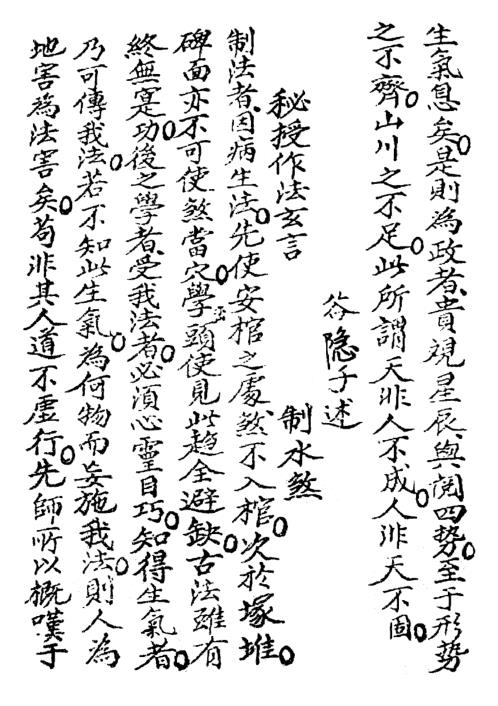 生氣息矣。是則為政者、貴視星辰、與閱四勢。至于形勢
之不齊。山川之不足。此所謂天非人不成。人非天不固。
谷隐子述
秘授作法玄言
制水煞
制法者、因病生法。先使安棺之處、煞不入棺。次於塚堆。
碑面亦不可使煞當穴。學頭使見此趋全避缺。古法雖有
終無寔功。後之學者、受我法者。必須心靈目巧。知得生氣者。
乃可傳我法。若不知此生氣。為何物而妄施我法。則人為
地害為法害矣。苟非其人道不虛行。先師所以概嘆于